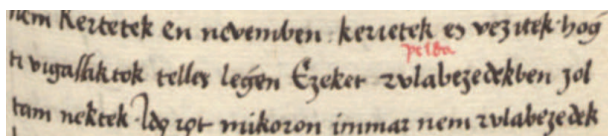 nem Kertetek En nevemben : kerietek es vezitek · hog
pelda
ti vigassaktok telles legen Ezeket zulabezedekben zol
tam nektek · Ido iot mikoron immar nem zulabezedek